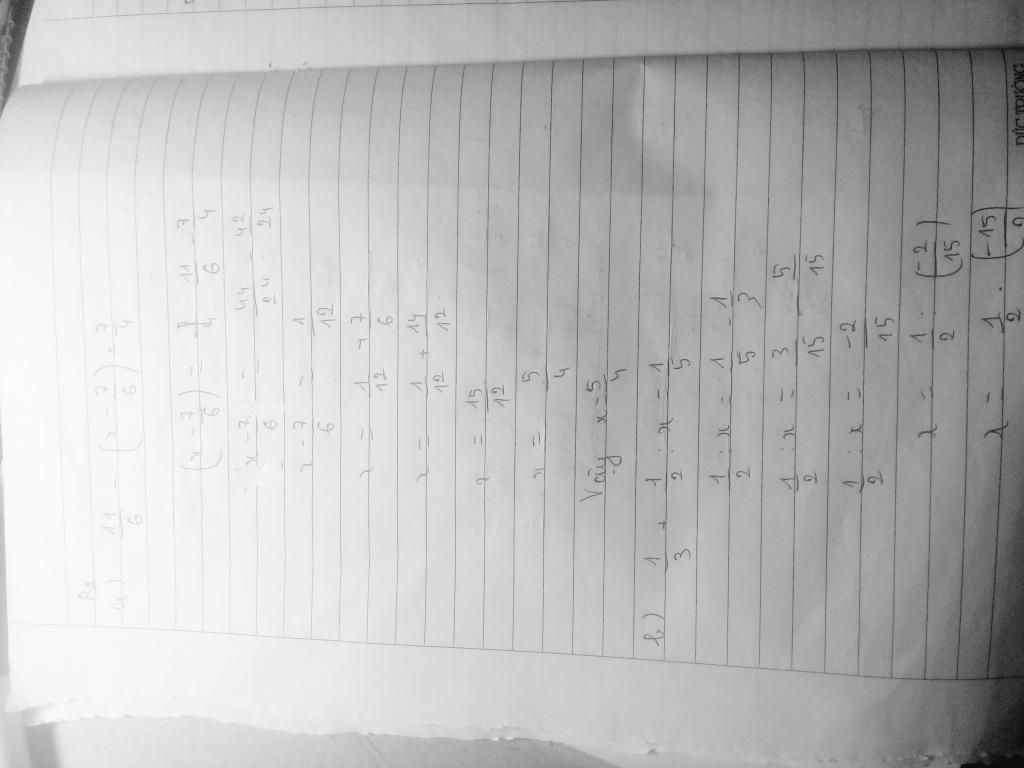 B2:
a) 11/6 - (x - 7/6) = 7/4
(x - 7/6) = 11/6 - 7/4
x - 7/6 = 44/24 - 42/24
x - 7/6 = 1/12
x = 1/12 + 7/6
x = 1/12 + 14/12
x = 15/12
x = 5/4
Vậy x = 5/4
b) 1/3 + 1/2 : x = 1/5
1/2 : x = 1/5 - 1/3
1/2 : x = 3/15 - 5/15
1/2 : x = -2/15
x = 1/2 : (2/15)
x = 1/2 . (-15/2)